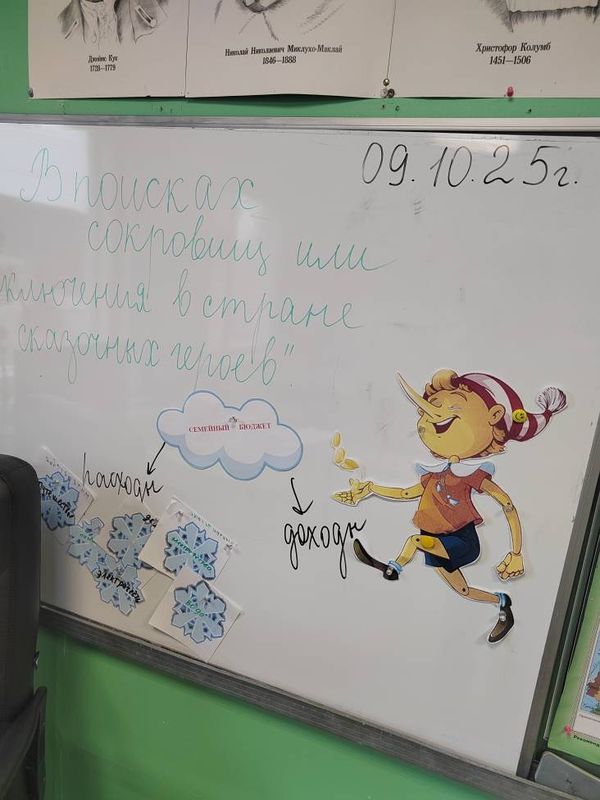 Джеймс Кук
1728—1779
Николай Николаевич Миклухо-Маклай
1846—1888
Христофор Колумб
1451—1506
09.10.25г.
В поисках
сокровищ или
ключения в стране
сказочных героев"
СЕМЕЙНЫЙ БЮДЖЕТ
расходы
доходы
вода